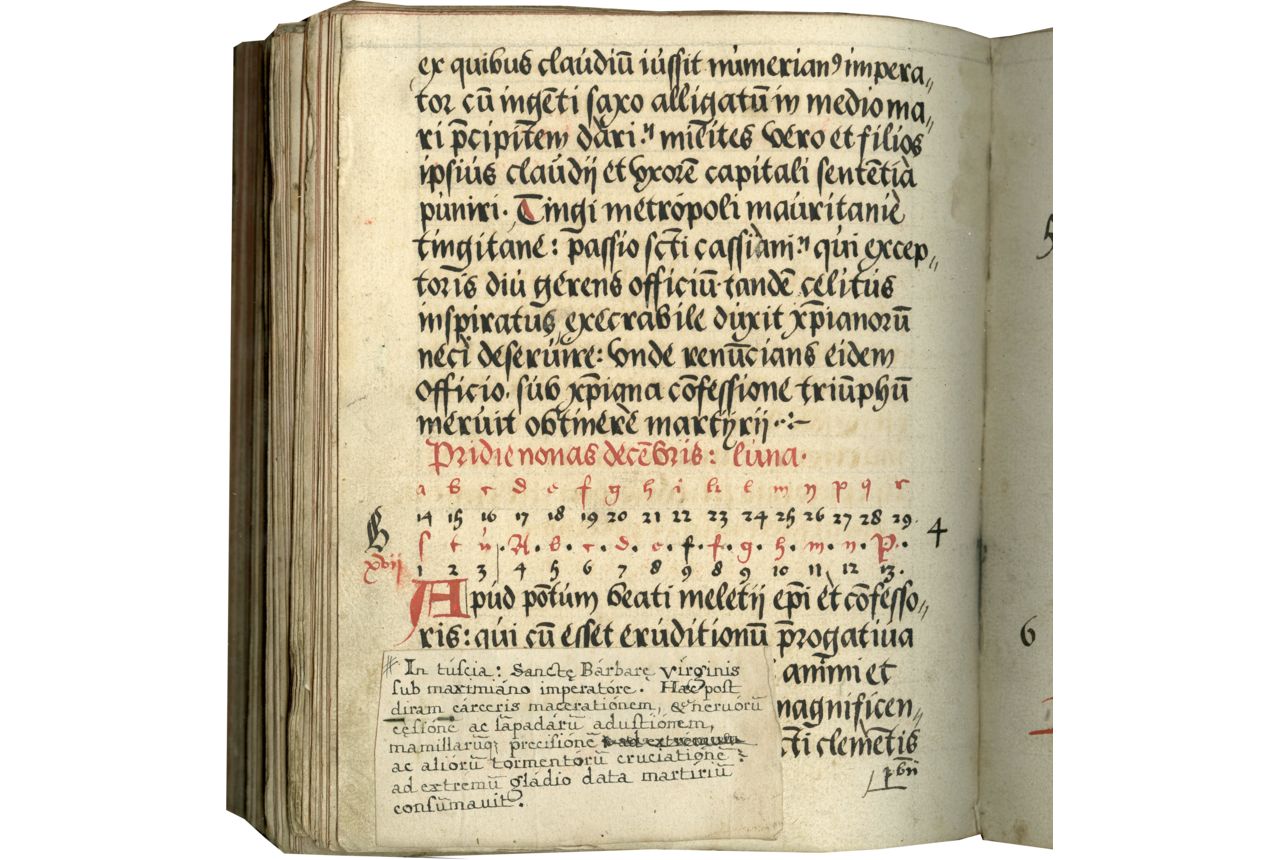 ex quibus claudiū iussit numerianꝰ impera〃
tor cū ingēti saxo alligatū in medio ma〃
ri p̄cipitem dari: milites vero et filios
ipsius claudij et vxorē capitali sentētia
puniri. Tingi metropoli mauritanie
tingitane: passio scti cassiani: qui excep〃
toris diu gerens officiū tandē celitus
inspiratus, execrabile duxit xp̄ianorū
neci deseruire: vnde renūcians eidem
officio. sub xp̄iana cōfessione triūphū
meruit obtinere martyrij
Pridie nonas decēbris: luna.
a b c d e f g h i k l m n p q r
14 15 16 17 18 19 20 21 22 23 24 25 26 27 28 29.
B
s t u. A. b. c. d. e. f. f. g. h. m. n. P.
4
xvij
1 2 3 4 5 6 7 8 9 8 9 10 11 12 13.
Apud pōtum beati meletij ep̄i et cōfesso〃
ris: qui cū esset eruditionū p̄rogatiua
animi et
magnificen〃
cti clemētis
In tuscia: Sanctę Barbarę virginis
sub maximiano imperatore. Hæc post
diram carceris macerationem, & neruorū
cęsionē ac lāpadarū adustionem,
mamillarūq; precisionē ad extremum
ac aliorū tormentorū cruciationē:
ad extremū gladio data martiriū
consumauit.
5
6